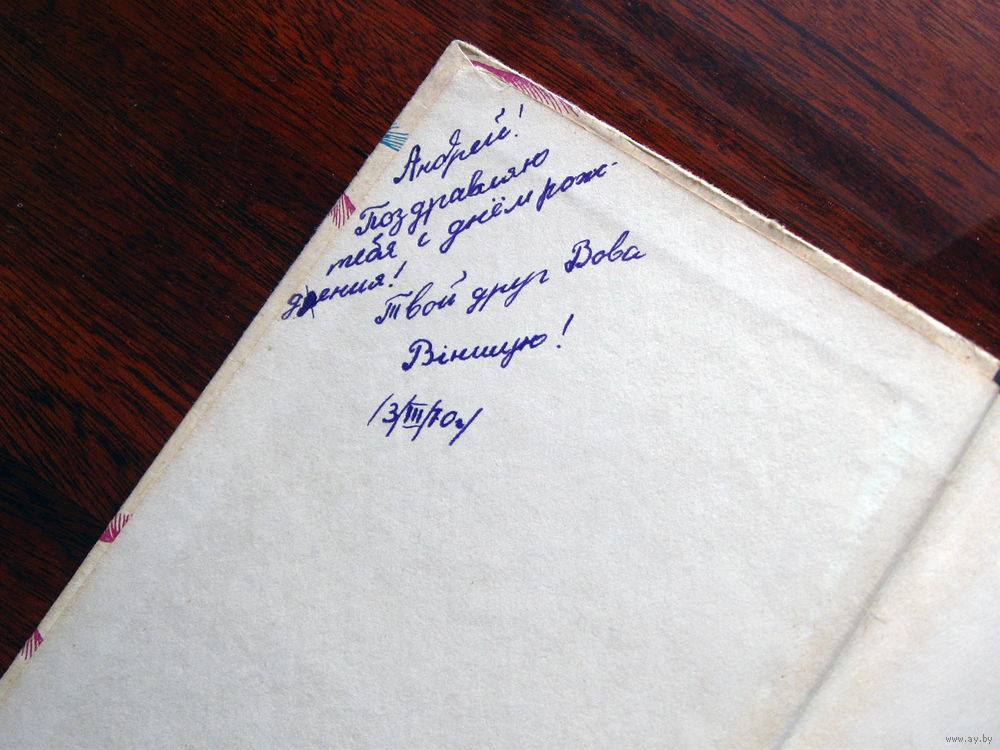 Андрей!
Поздравляю
тебя с днём рож-
дения!
Твой друг Вова
Вiншую!
/3/III/70г/
www.ay.by